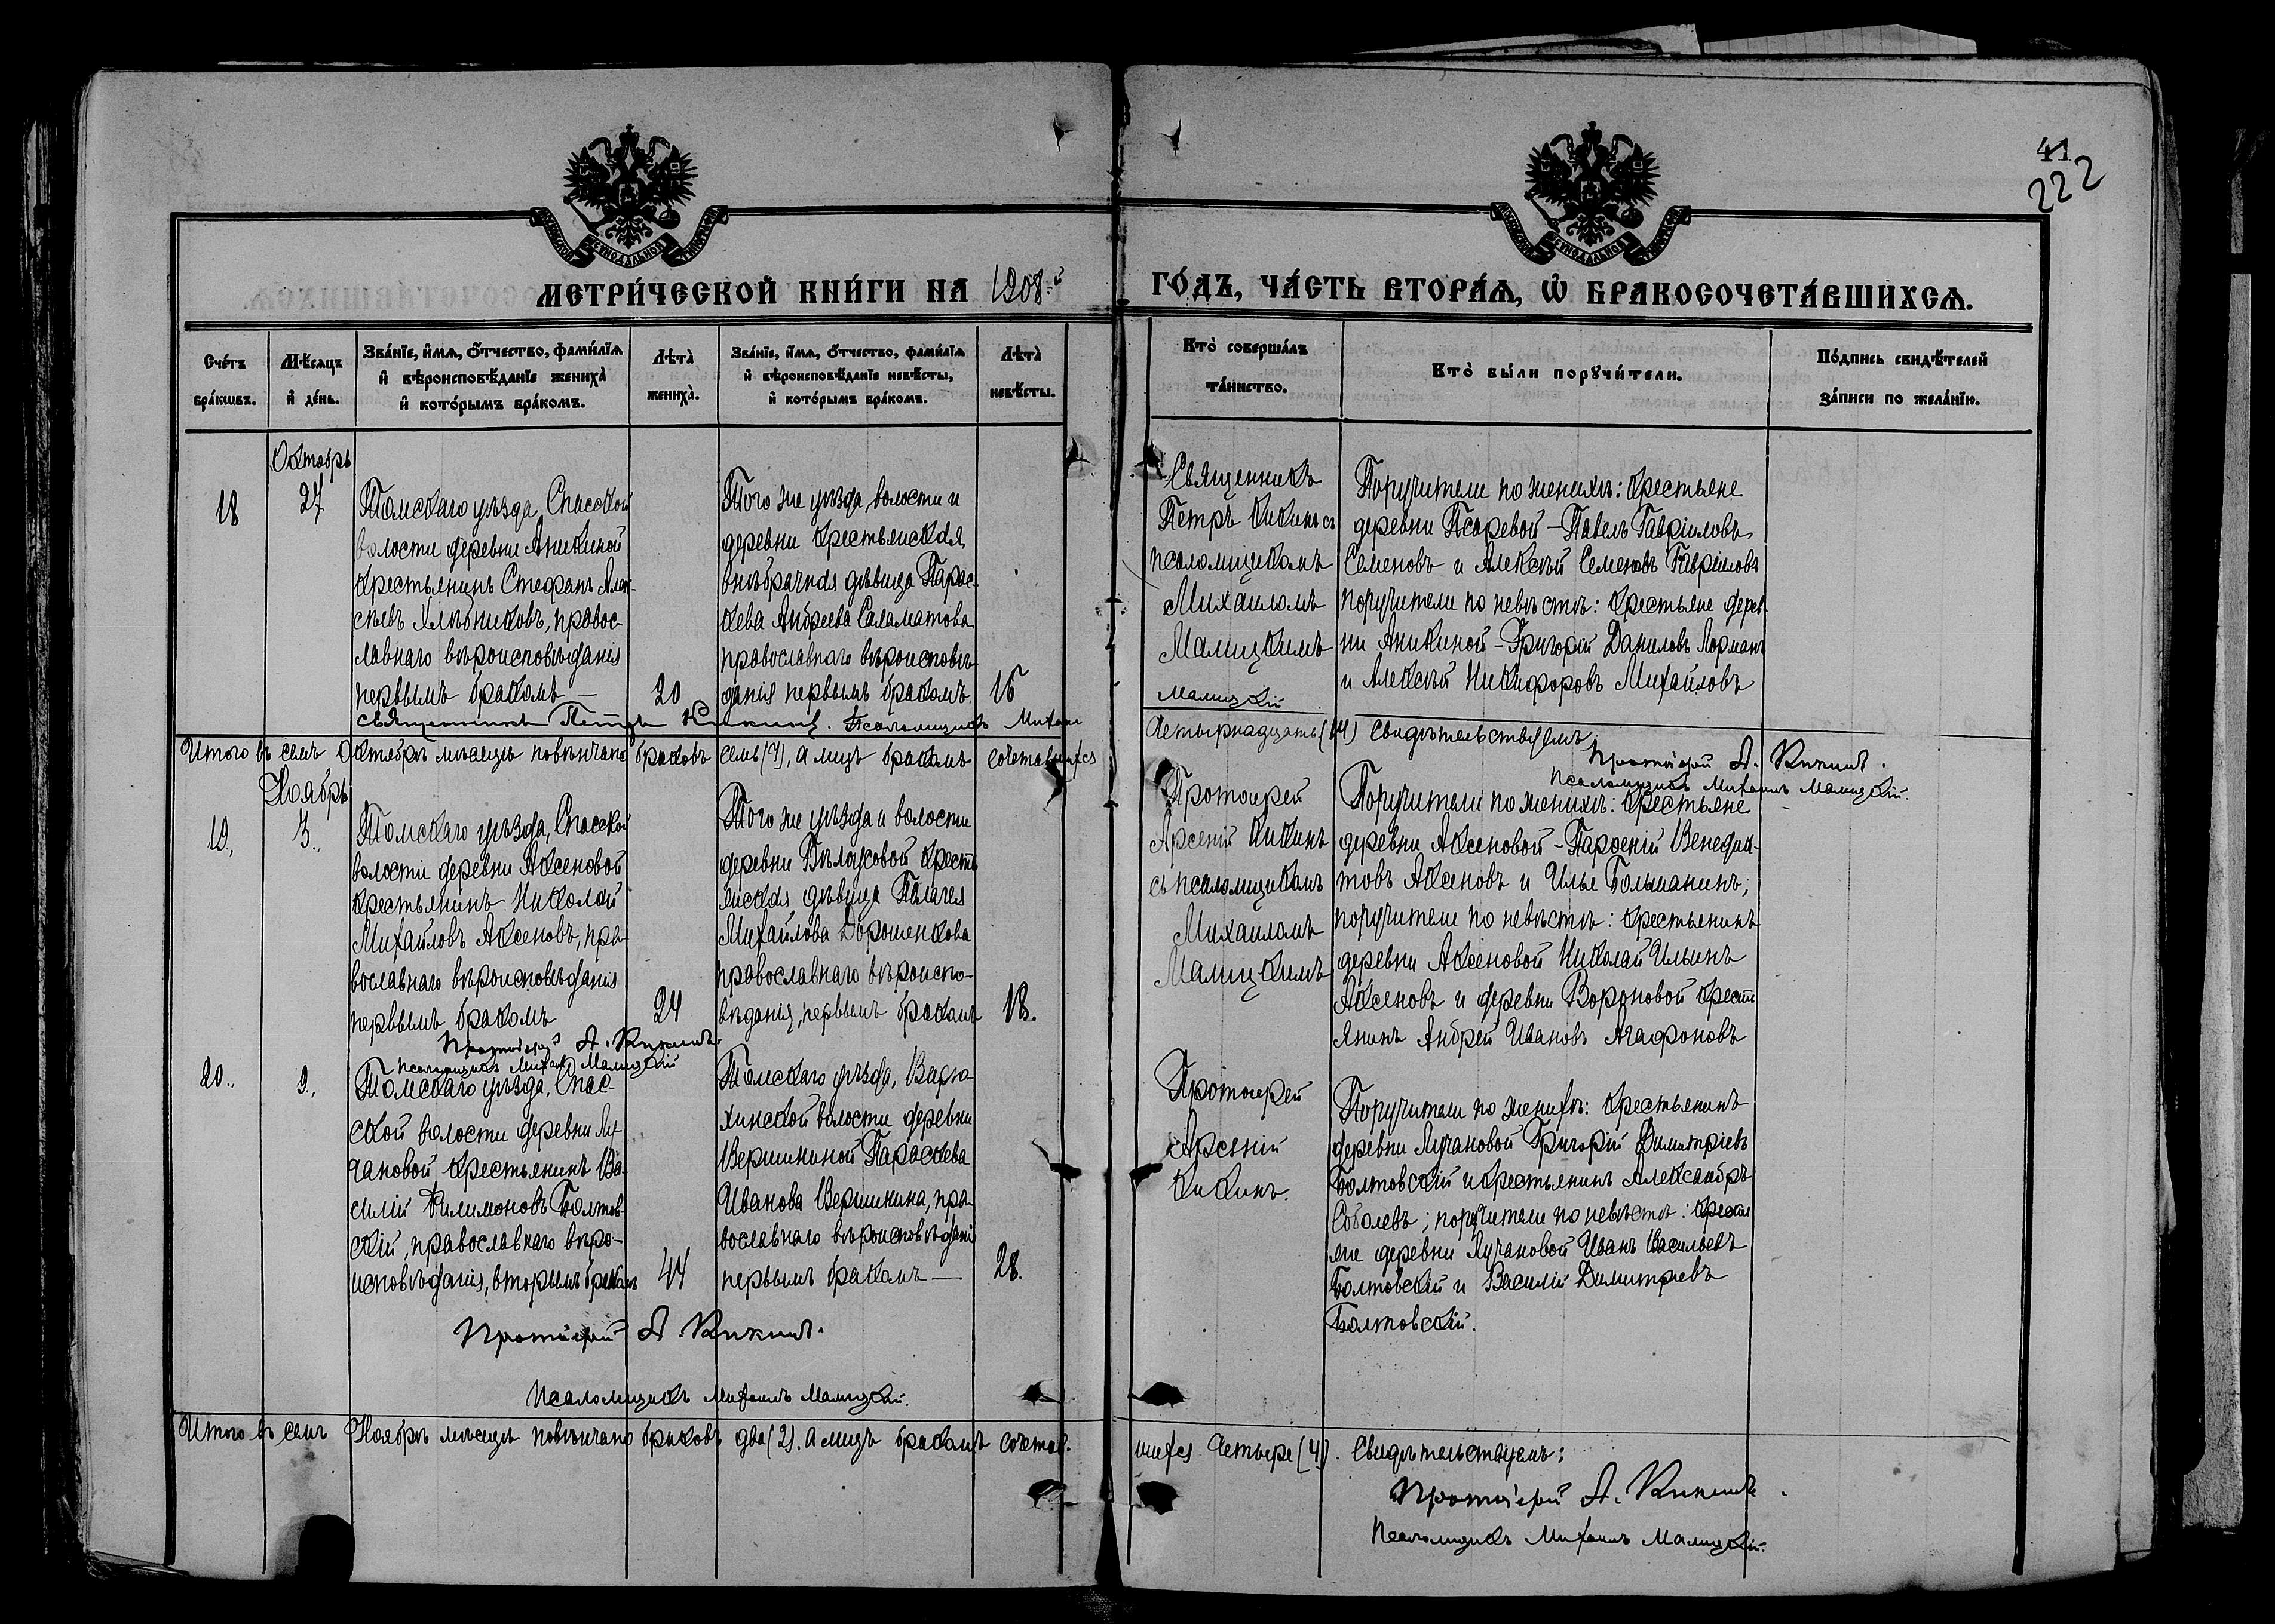 41
222
МЕТРИ́ЧЕСКОЙ КНИ́ГИ НА 1908-й ГО́ДЪ, ЧА́СТЬ ВТОРА́Ѧ, Ѡ҆ БРАКОСОЧЕТА́ВШИХСѦ.
Сче́тъ бра́кѡвъ.
Мѣ́сѧцъ и҆ де́нь.
Зва́нїе, и҆́мѧ, ѻ҆́тчество, фами́лїѧ и҆ вѣроисповѣ́данїе жениха̀ и҆ кото́рымъ бра́комъ.
Лѣ́та̀ жениха̀.
Зва́нїе, и҆́мѧ, ѻ҆́тчество, фами́лїѧ и҆ вѣроисповѣ́данїе невѣ́сты, и҆ кото́рымъ бра́комъ.
Лѣ́та̀ невѣ́сты.
Кто̀ соверша́лъ та́инство.
Кто̀ бы́ли порꙋчи́тели.
По́дпись свидѣ́телей за́писи по жела́нїю.
Октябрь
18
27
Томскаго уѣзда, Спасской
волости деревни Аникиной
крестьянинъ Стефанъ Алек-
сѣевъ Хлѣбниковъ, правос-
лавнаго вѣроисповѣданія
первымъ бракомъ —
20
Того же уѣзда, волости и
деревни крестьянская
внѣбрачная дѣвица Парас-
кева Андреева Саламатова
православнаго вѣроисповѣ-
данія первымъ бракомъ.
16
Священникъ
Петръ Кикинъ съ
псаломщикомъ
Михаиломъ
Малицкимъ
Поручители по женихѣ: крестьяне
деревни Псаревой – Павелъ Гавріиловъ
Семеновъ и Алексѣй Семеновъ Гавріиловъ
поручители по невѣстѣ: крестьяне дерев-
ни Аникиной – Григорій Даниловъ Лорманъ
и Алексѣй Никифоровъ Михайловъ
священникъ Петръ Кикинъ. Псаломщикъ Михаилъ
Малицкій
Итого въ семъ Октябрѣ мѣсяцѣ повѣнчано браковъ семь (7), а лицъ бракомъ сочетавшихся
Четырнадцать (14) свидѣтельствуемъ:
Протоіерей А. Кикинъ.
Псаломщикъ Михаилъ Малицкій.
Ноябрь
19.,
3.,
Томскаго уѣзда, Спасской
волости деревни Аксеновой
крестьянинъ Николай
Михайловъ Аксеновъ, пра-
вославнаго вѣроисповѣданія
первымъ бракомъ
24
Того же уѣзда и волости
деревни Бѣлоусовой кресть-
янская дѣвица Пелагея
Михайлова Дорошенкова
православнаго вѣроиспо-
вѣданія, первымъ бракомъ
18.
Протоіерей
Арсеній Кикинъ
съ псаломщикомъ
Михаиломъ
Малицкимъ
Поручители по женихѣ: крестьяне
деревни Аксеновой – Парѳеній Венедик-
товъ Аксеновъ и Илья Больманинъ;
поручители по невѣстѣ: крестьянинъ
деревни Аксеновой Николай Ильинъ
Аксеновъ и деревни Вороновой кресть
янинъ Андрей Ивановъ Агафоновъ
Протоіерей А. Кикинъ.
Псаломщикъ Михаилъ Малицкій
20.,
9.,
Томскаго уѣзда, Спас-
ской волости деревни Лу-
чановой крестьянинъ Ва-
силій Филимоновъ Болтов-
скій, православнаго вѣро-
исповѣданія, вторымъ бракомъ
44
Томскаго уѣзда, Варю-
хинской волости деревни
Вершининой Параскева
Иванова Вершинина, пра-
вославнаго вѣроисповѣданія
первымъ бракомъ —
28.
Протоіерей
Арсеній
Кикинъ.
Поручители по женихѣ: крестьянинъ
деревни Лучановой Григорій Димитріевъ
Болтовскій и крестьянинъ Александръ
Соболевъ; поручители по невѣстѣ: кресть
яне деревни Лучановой Иванъ Васильевъ
Болтовскій и Василій Димитріевъ
Болтовскій.
Протоіерей А. Кикинъ.
Псаломщикъ Михаилъ Малицкій.
Итого въ семъ Ноябрѣ мѣсяцѣ повѣнчано браковъ два (2). а лицъ бракомъ сочетав-
шихся четыре (4). Свидѣтельствуемъ:
Протоіерей А. Кикинъ.
Псаломщикъ Михаилъ Малицкій.